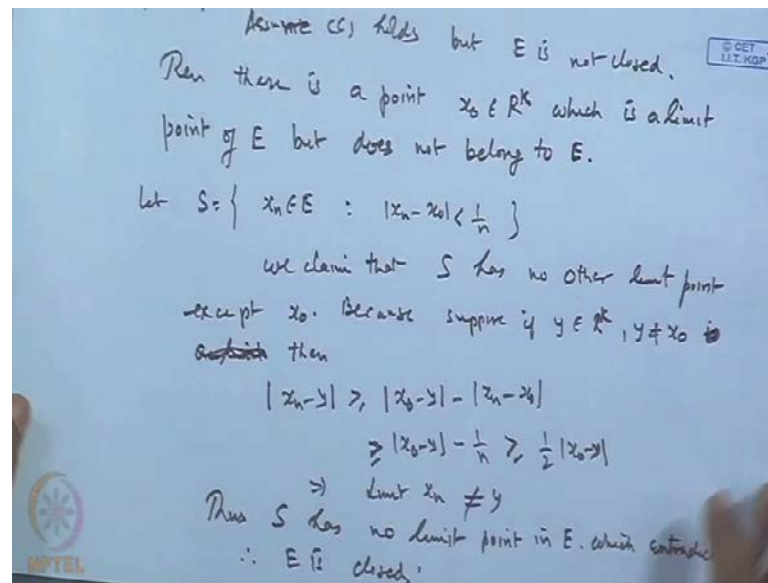 Assume (c) holds but E is not closed.
© CET
I.I.T. KGP
Then there is a point x₀ ∈ Rᵏ which is a limit
point of E but does not belong to E.
Let S = { xₙ ∈ E : |xₙ - x₀| < 1/n }
we claim that S has no other limit point
except x₀. Because suppose if y ∈ Rᵏ, y ≠ x₀
then
|xₙ-y| ≥ |x₀-y| - |xₙ-x₀|
≥ |x₀-y| - 1/n ≥ 1/2 |x₀-y|
⇒ limit xₙ ≠ y
Thus S has no limit point in E. which contradic
∴ E is closed.
NPTEL